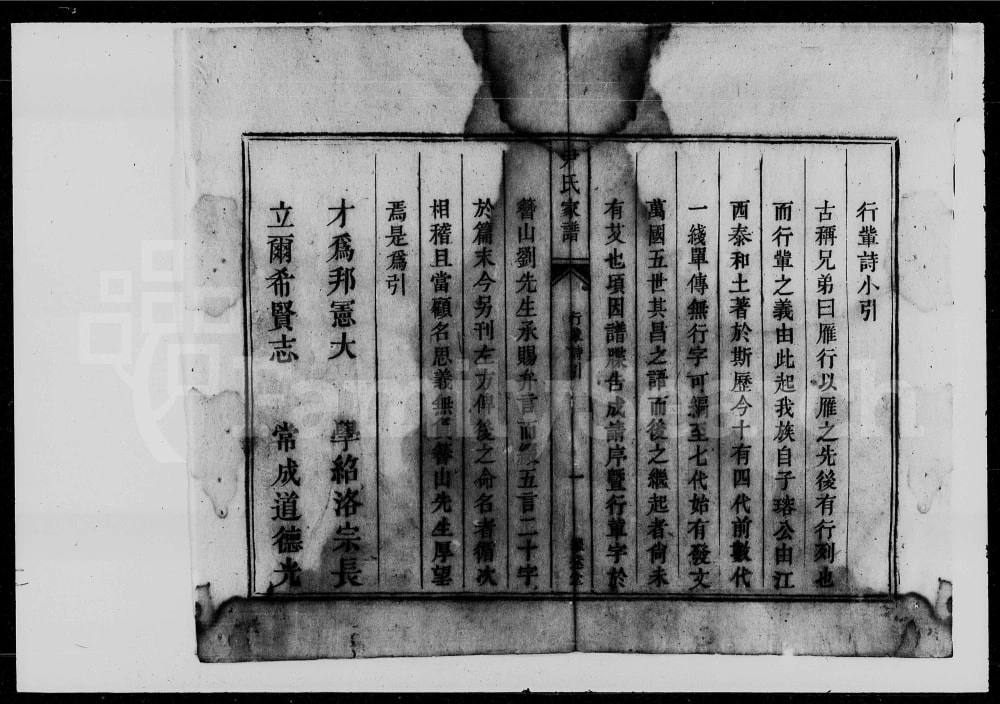 行軰詩小引
古稱兄弟曰雁行以雁之先後有行列也
而行軰之義由此起我族自子瑢公由江
西泰和土著於斯歷今十有四代前數代
一綫單傳無行字可編至七代始有發文
萬國五世其昌之語而後之繼起者尚未
有艾也頃因譜牒告成請序曁行軰字於
尹氏家譜
行軰詩引
一
礬山劉先生承賜弁言而五言二十字
於篇末今另刊左方俾後之命名者循次
相稽且當顧名思義無負礬山先生厚望
焉是爲引
才爲邦憲大 學紹洛宗長
立爾希賢志 常成道德光
FamilySearch